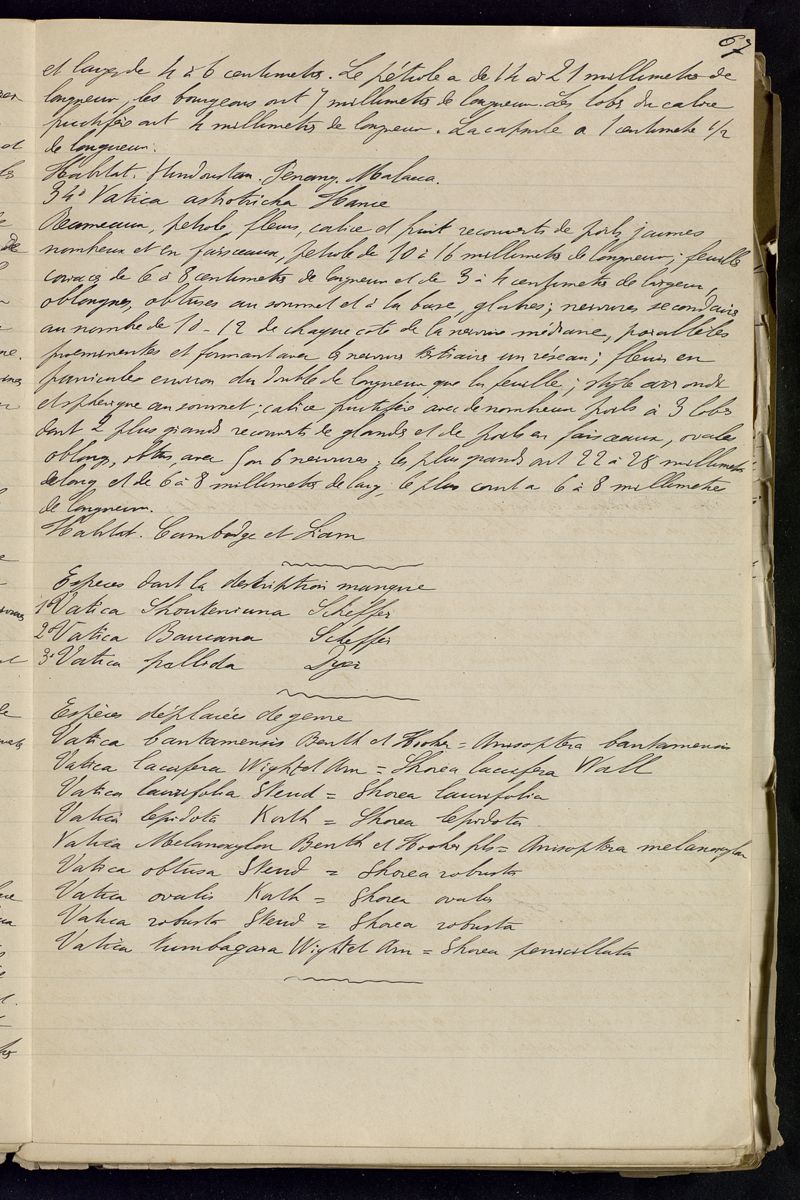 67
et larges de 4 à 6 centimetres. Le pétiole a de 14 à 21 millimetres de
longueur, les bourgeons ont 7 millimetres de longueur. Les lobes du calice
fructifère ont 4 millimetres de longueur. La capsule a 1 centimetre 1/2
de longueur.
Habitat. Hindoustan. Penang. Malacca.
34° Vatica astrotricha Hance
Rameaux, petiole, fleurs, calice et fruit recouverts de poils jaunes
nombreux et en faisceaux, petiole de 10 à 16 millimetres de longueur; feuilles
coriaces de 6 à 8 centimetres de longueur et de 3 à 4 centimetres de largeur,
oblongues, obtuses au sommet et à la base, glabres; nervures secondaires
au nombre de 10-12 de chaque côté de la nervure médiane, parallèles
proeminentes et formant avec les nervures tertiaires un réseau; fleurs en
panicules environ du double de longueur que la feuille; style arrondi
et au sommet; calice fructifère avec de nombreux poils à 3 lobes
dont 2 plus grands recouverts de glands et de poils en faisceaux, ovales
oblongs, obtus, avec 5 ou 6 nervures; les plus grands ont 22 à 28 millimetres
de long et de 6 à 8 millimetres de large, le plus court a 6 à 8 millimetres
de longueur.
Habitat. Cambodge et Siam
Espèces dont la description manque
1° Vatica Shouteniana Scheffer
2° Vatica Bancana Scheffer
3° Vatica pallida Dyer
Espèces déplacées de genre
Vatica bantamensis Benth et Hooker = Anisoptera bantamensis
Vatica laccifera Wight et Arn = Shorea laccifera Wall
Vatica laurifolia Steud = Shorea laurifolia
Vatica lepidota Korth = Shorea lepidota
Vatica Melanoxylon Benth et Hooker fils = Anisoptera melanoxylon
Vatica obtusa Steud = Shorea robusta
Vatica ovalis Korth = Shorea ovalis
Vatica robusta Steud = Shorea robusta
Vatica tumbagaia Wight et Arn = Shorea penicillata